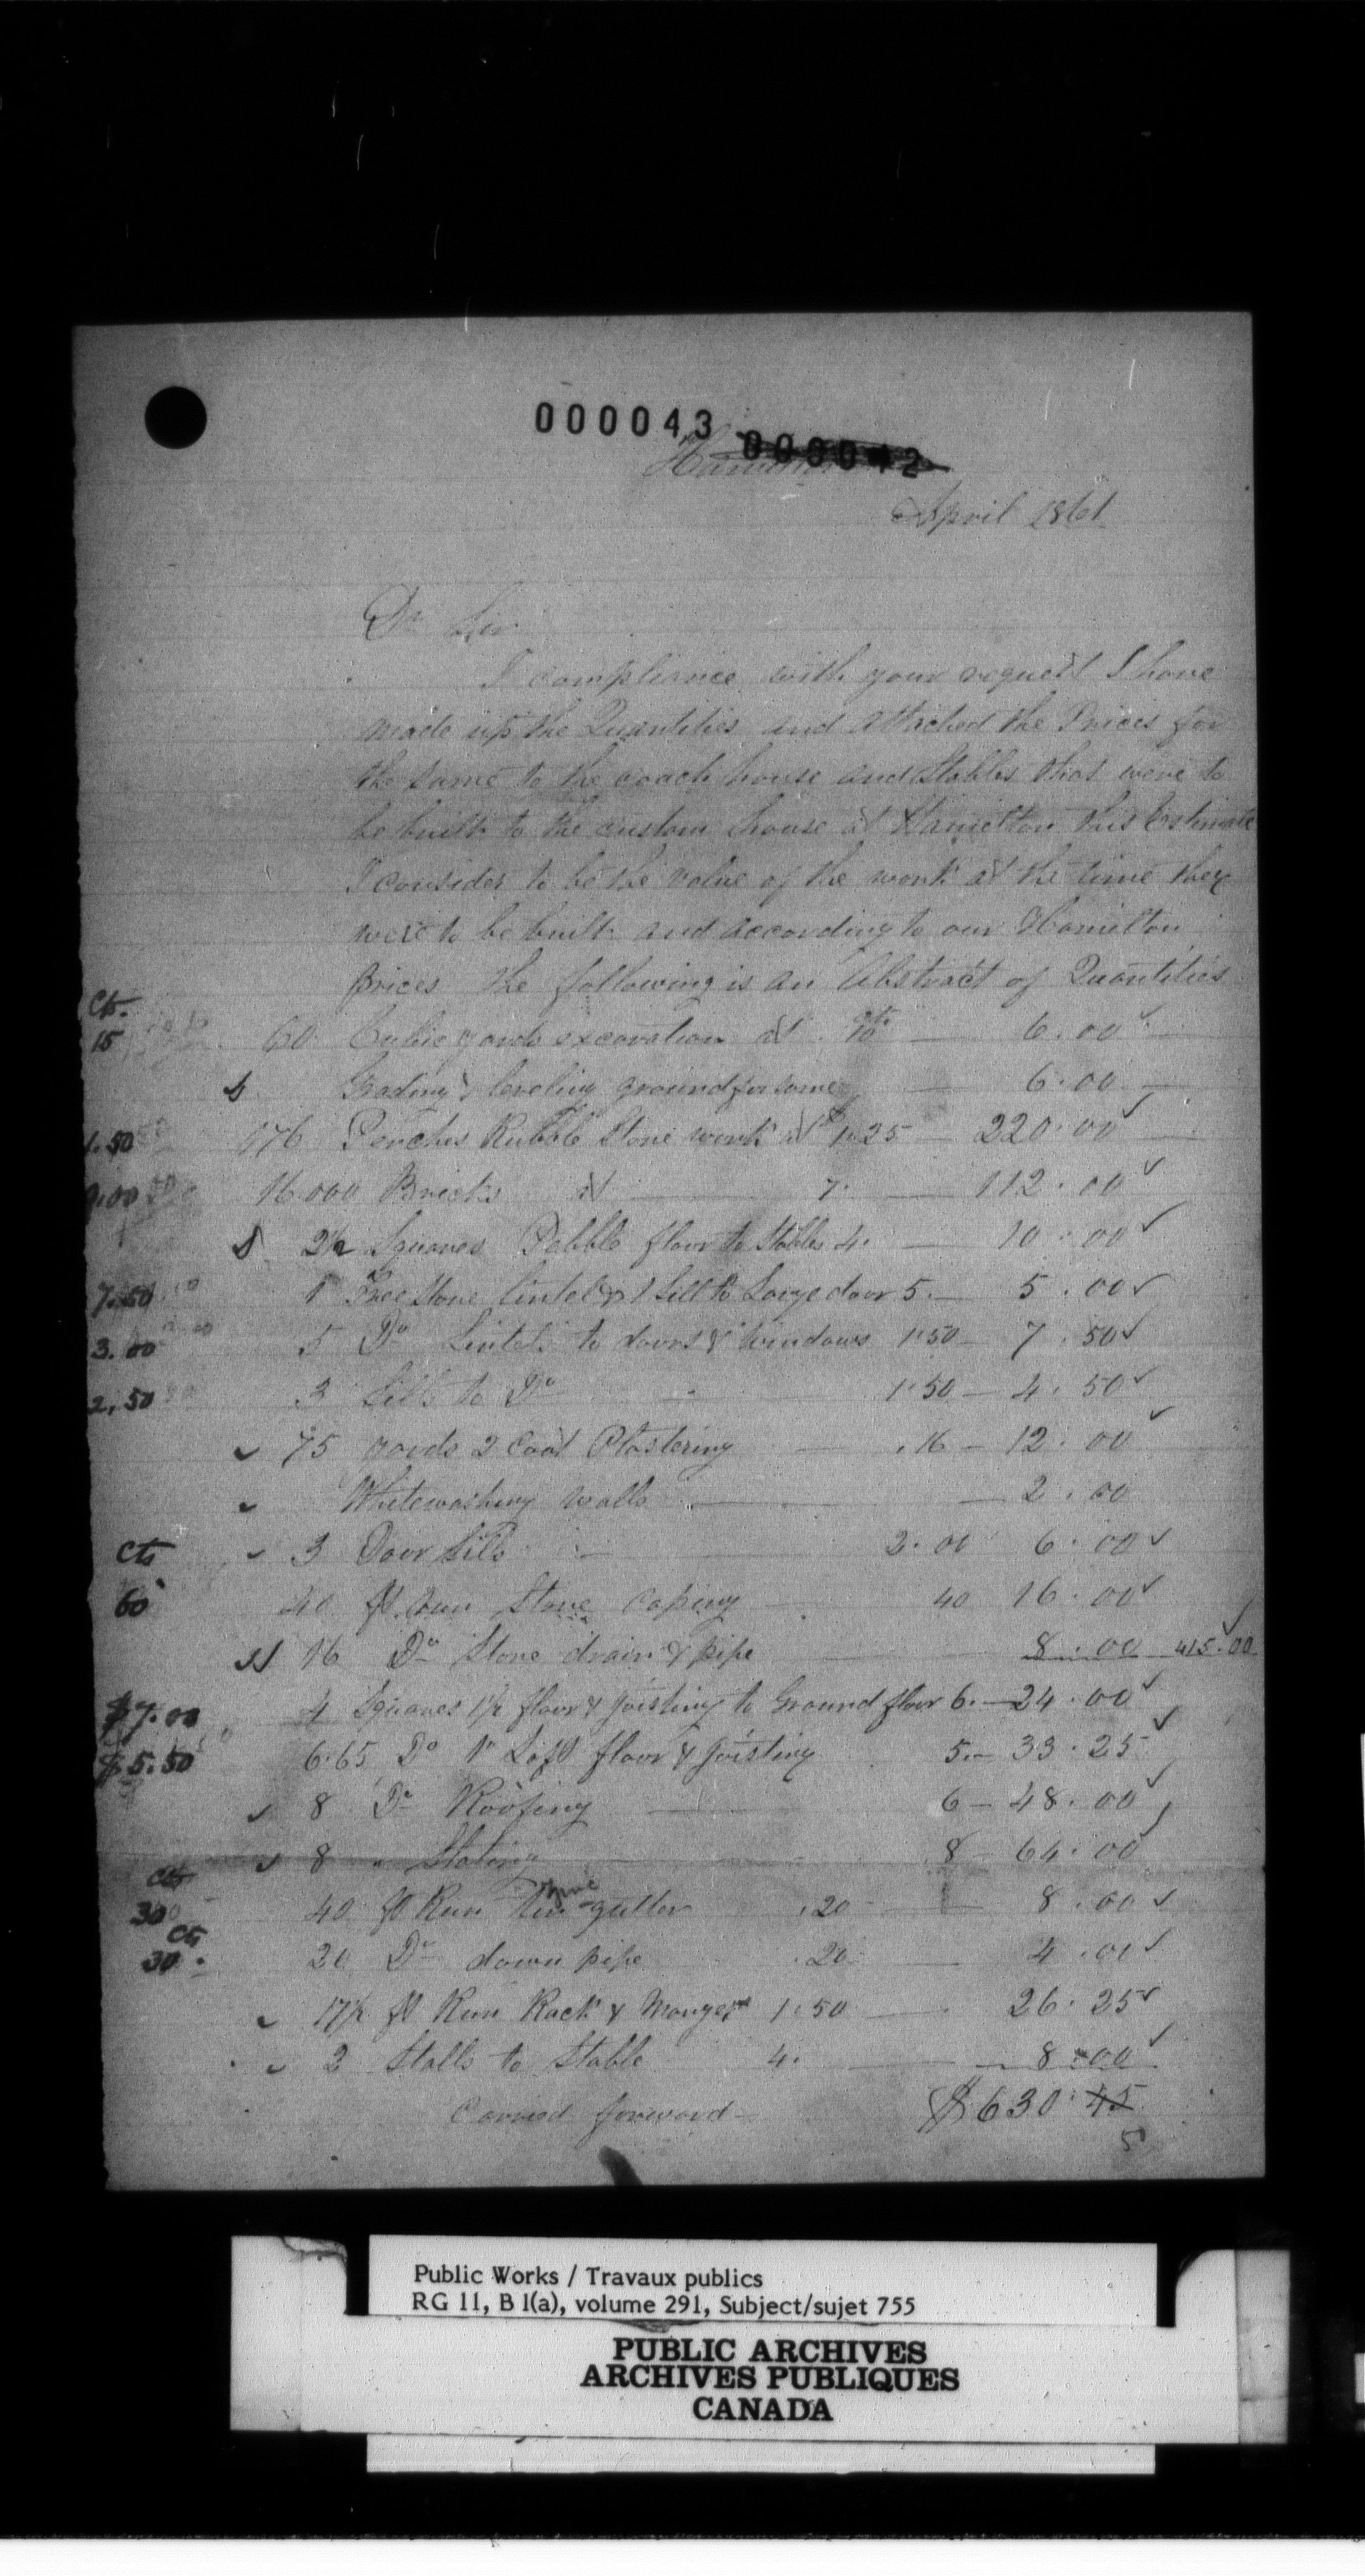 000043 000042
Hamilton
April 1861
Dr Sir
I compliance with your request I have
made up the Quantities and attached the Prices for
the same to the coach house and Stables that were to
be built to the custom house at Hamilton this Estimate
I consider to be the value of the work at the time they
were to be built and according to our Hamilton
prices the following is an Abstract of Quantities
Cts.
15 60 Cubic yards excavation at 10 cts — 6.00 ✓
Grading & leveling ground for same — 6.00 —
1.50 176 Perches Rubble Stone work at $1.25 — 220.00 ✓
9.00 16.000 Bricks at — 7. — 112.00 ✓
2½ Squares Pebble floor to Stables 4. — 10.00 ✓
7.50 1 Free Stone lintel & 1 Sill to Large door 5. — 5.00 ✓
3.00 5 Do Lintels to doors & Windows 1.50 — 7.50 ✓
2.50 3 Sills to Do 1.50 — 4.50 ✓
75 yards 2 Coat Plastering — .16 — 12.00 ✓
Whitewashing walls — 2.00
Cts 3 Door Sills — 2.00 6.00 ✓
60 40 ft. run Stone Coping — 40 16.00 ✓
16 Do Stone drain & pipe — 8.00 415.00 ✓
$7.00 4 Squares 1½ floor & joisting to Ground floor 6. — 24.00 ✓
$5.50 6.65 Do 1" Loft floor & Joisting 5. — 33.25 ✓
8 Do Roofing — 6 — 48.00 ✓
8 " Slating — 8 — 64.00 ✓
Cts
30 40 ft Run gutter .20 — 8.00 ✓
Cts
30 20 Do down pipe .20 — 4.00 ✓
17½ ft Run Rack & Manger 1.50 — 26.25 ✓
2 Stalls to Stable 4. — 8.00 ✓
Carried forward — $630.45
5
Public Works / Travaux publics
RG 11, B 1(a), volume 291, Subject/sujet 755
PUBLIC ARCHIVES
ARCHIVES PUBLIQUES
CANADA